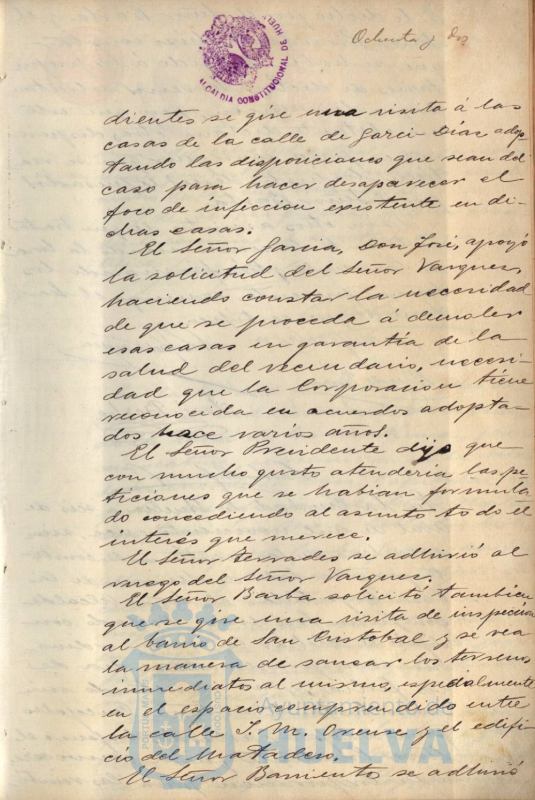 Ochenta y dos
ALCALDIA CONSTITUCIONAL DE HUELVA
dientes se gire una visita á las
casas de la calle de Garci-Díaz adop-
tando las disposiciones que sean del
caso para hacer desaparecer el
foco de infeccion existente en di-
chas casas.
El Señor Garcia, Don José, apoyó
la solicitud del Señor Vazquez,
haciendo constar la necesidad
de que se proceda á demoler
esas casas en garantía de la
salud del vecindario, necesi-
dad que la Corporacion tiene
reconocida en acuerdos adopta-
dos hace varios años.
El Señor Presidente dijo que
con mucho gusto atenderia las pe-
ticiones que se habian formula-
do concediendo al asunto todo el
interés que merece.
El Señor Terrades se adhirió al
ruego del Señor Vazquez.
El Señor Barba solicitó tambien
que se gire una visita de inspección
al barrio de San Cristobal y se vea
la manera de sanear los terrenos
inmediatos al mismo, especialmente
en el espacio comprendido entre
la calle J. M. Orense y el edifi-
cio del Matadero.
El Señor Barriento se adhirió
Ayuntamiento de
HUELVA